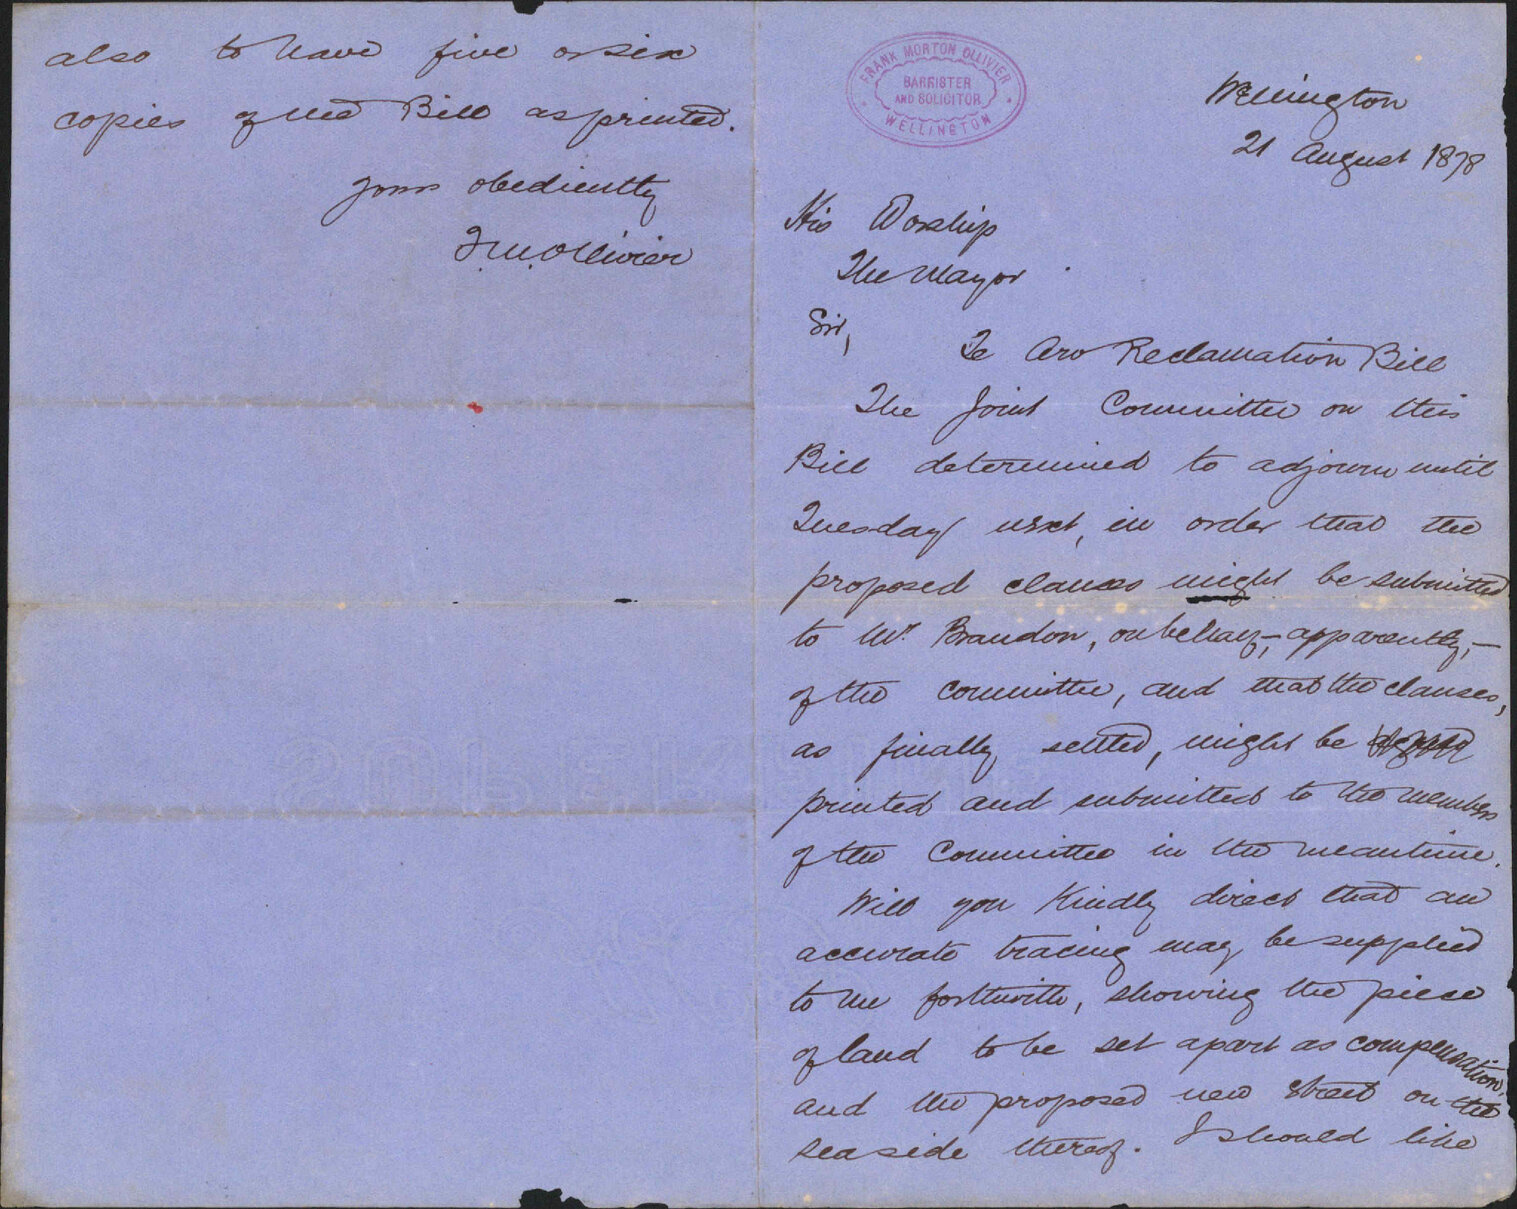 FRANK MORTON OLLIVIER
BARRISTER
AND SOLICITOR
WELLINGTON
Wellington
21 August 1878
His Worship
The Mayor
Sir,
Te Aro Reclamation Bill
The Joint Committee on this
Bill determined to adjourn until
Tuesday next, in order that the
proposed clauses might be submitted
to Mr. Brandon, on behalf,- apparently,-
of the committee, and that the clauses,
as finally settled, might be
printed and submitted to the members
of the Committee in the meantime.
Will you kindly direct that an
accurate tracing may be supplied
to me forthwith, showing the piece
of land to be set apart as compensation,
and the proposed new street on the
seaside thereof. I should like
also to have five or six
copies of the Bill as printed.
Yours obediently
F.M. Ollivier